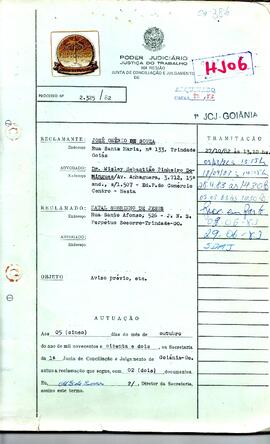 PODER JUDICIÁRIO
JUSTIÇA DO TRABALHO
REGIÃO
JUNTA DE CONCILIAÇÃO E JULGAMENTO
DE
HJ06
PROCESSO Nº 2.325/82
1ª JCJ-GOIÂNIA
RECLAMANTE: JOSÉ OSÓRIO DE SOUZA
Endereço Rua Santa Maria, nº 133, Trindade
Goiás
ADVOGADO: Dr. Wisley Sebastião Pinheiro
Endereço Av. Anhanguera, 3.712, 15º
and., s/1.507 - Ed.P.do Comércio
Centro - Nesta
RECLAMADO: NATAL SOBRINHO DE JESUS
Endereço Rua Santo Afonso, 526 - J. N. S.
Perpétuo Socorro-Trindade-GO.
ADVOGADO:
Endereço
OBJETO Aviso prévio, etc.
TRAMITAÇÃO
27/10/82 às 13,10 hs.
29.6.83
AUTUAÇÃO
Aos 05 (cinco) dias do mês de outubro
do ano de mil novecentos e oitenta e dois, na Secretaria
da 1ª Junta de Conciliação e Julgamento de Goiânia-Go.
autuo a reclamação que segue, com 02 (dois) documentos.
Eu, Diretor da Secretaria,
assino este termo.